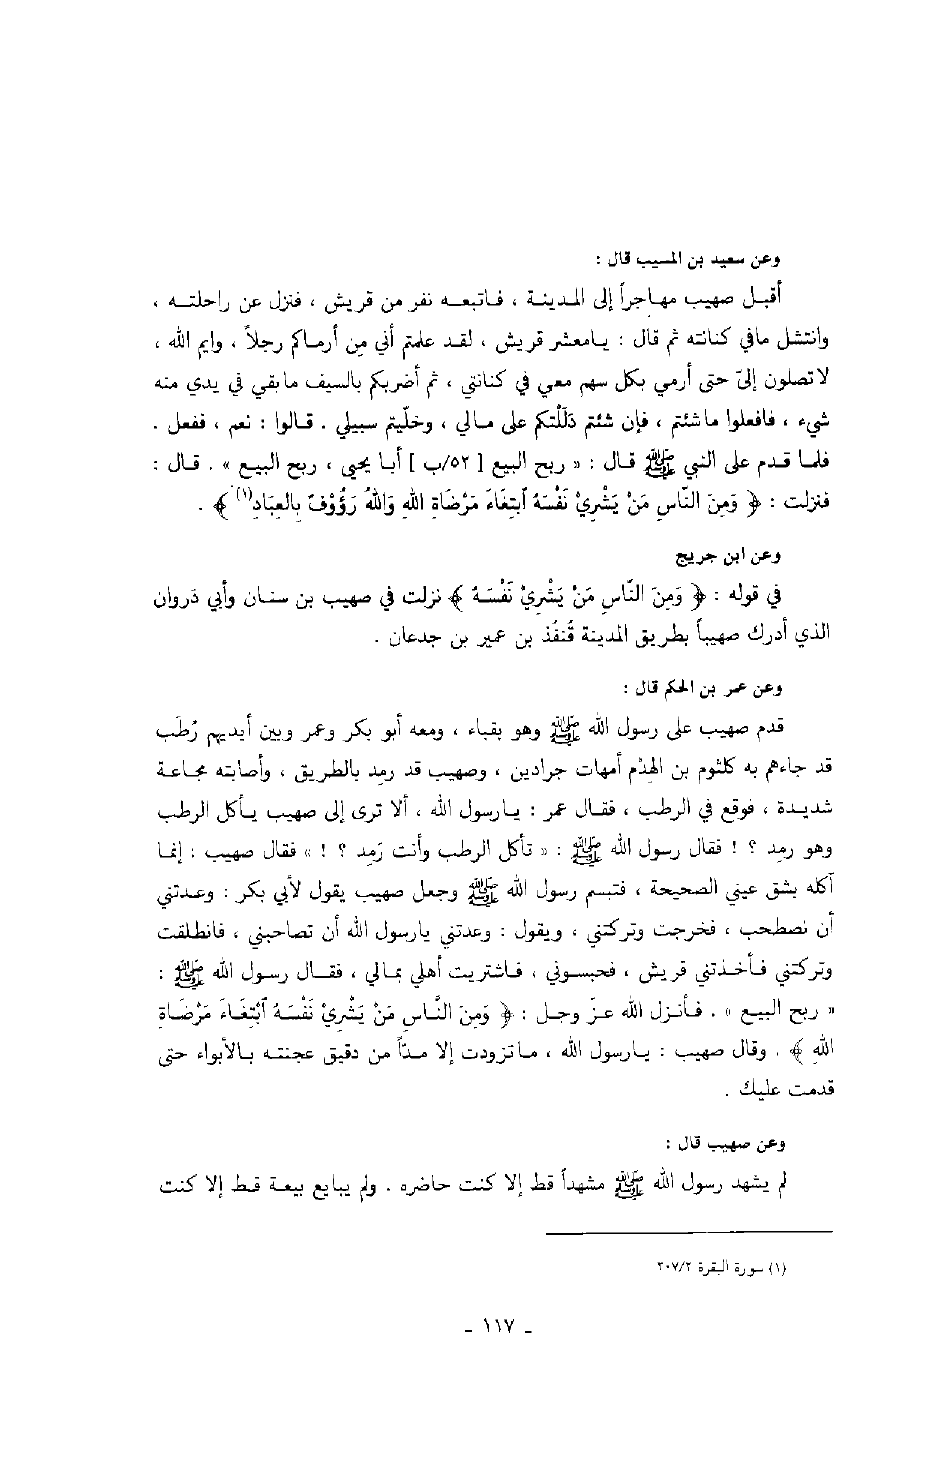 وعن سعيد بن المسيب قال :
أقبل صهيب مهاجراً إلى المدينة ، فاتبعه نفر من قريش ، فنزل عن راحلته ،
وانتشل مافي كنانته ثم قال : يامعشر قريش ، لقد علمتم أني من أرماكم رجلاً ، وايم الله ،
لاتصلون إليّ حتى أرمي بكل سهم معي في كنانتي ، ثم أضربكم بالسيف مابقي في يدي منه
شيء ، فافعلوا ماشئتم ، فإن شئتم دَلَلْتكم على مالي ، وخلّيتم سبيلي . قالوا : نعم ، ففعل .
فلما قدم على النبي ﷺ قال : « ربح البيع [ ٥٢/ب ] أبا يحيى ، ربح البيع » . قال :
فنزلت : ﴿ وَمِنَ النَّاسِ مَنْ يَشْرِيْ نَفْسَهُ ٱبتِغَاءَ مَرْضَاةِ اللهِ وَاللهُ رَؤُوْفٌ بِالعِبَادِ(١) ﴾ .
وعن ابن جريج
في قوله : ﴿ وَمِنَ النَّاسِ مَنْ يَشْرِيْ نَفْسَهُ ﴾ نزلت في صهيب بن سنان وأبي ذروان
الذي أدرك صهيباً بطريق المدينة قُنفُذ بن عمير بن جدعان .
وعن عمر بن الحكم قال :
قدم صهيب على رسول الله ﷺ وهو بقباء ، ومعه أبو بكر وعمر وبين أيديهم رُطَب
قد جاءهم به كلثوم بن الهِدْم أمهات جرادين ، وصهيب قد رمِد بالطريق ، وأصابته مجاعة
شديدة ، فوقع في الرطب ، فقال عمر : يارسول الله ، ألا ترى إلى صهيب يأكل الرطب
وهو رمِد ؟ ! فقال رسول الله ﷺ : « تأكل الرطب وأنت رَمِد ؟ ! » فقال صهيب : إنما
آكله بشق عيني الصحيحة ، فتبسم رسول الله ﷺ وجعل صهيب يقول لأبي بكر : وعدتني
أن نصطحب ، فخرجت وتركتني ، ويقول : وعدتني يارسول الله أن تصاحبني ، فانطلقت
وتركتني فأخذتني قريش ، فحبسوني ، فاشتريت أهلي بمالي ، فقال رسول الله ﷺ :
« ربح البيع » . فأنزل الله عزّ وجل : ﴿ وَمِنَ النَّاسِ مَنْ يَشْرِيْ نَفْسَهُ ٱبْتِغَاءَ مَرْضَاةِ
اللهِ ﴾ . وقال صهيب : يارسول الله ، ماتزودت إلا مدّاً من دقيق عجنته بالأبواء حتى
قدمت عليك .
وعن صهيب قال :
لم يشهد رسول الله ﷺ مشهداً قط إلا كنت حاضره . ولم يبايع بيعة قط إلا كنت
(١) سورة البقرة ٢٠٧/٢
- ١١٧ -